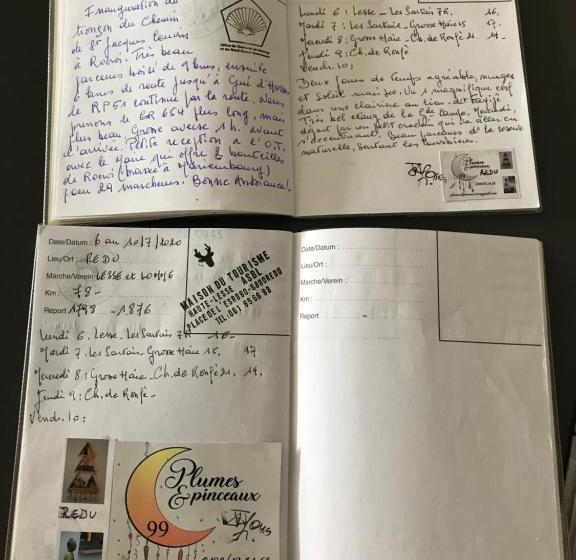 Inauguration du
tronçon du Chemin
de St Jacques Lemin
à Rocroi. Très beau
parcours boisé de 9 kms, ensuite
6 kms de route jusqu'à Gué d'Hossus
de RP51 continue par la route. Nous
prenons le GR 654 plus long, mais
plus beau. Grosse averse 1 h. avant
d'arriver. Petite réception à l'O.T.
avec le Maire qui offre 2 bouteilles
de Rocroi
pour 29 marcheurs. Bonne Ambiance!
Lundi 6 : Lesse - Les Sartais 7R. 16,
Mardi 7 : les Sartais - Grosse Haie 15 17.
Mercredi 8 : Grosse Haie - Ch. de Ronfè 21. 14.
Jeudi 9 : Ch. de Ronfè
Vendr. 10 :
Deux jours de temps agréable, nuages
et soleil mais sec. Vu 1 magnifique cerf
dans une clairière au lieu-dit
Très bel étang de la
départ par un petit crachin qui va aller en
s'accentuant. Beau parcours de la réserve
naturelle, sentant les tourbières.
Plumes
& pinceaux
REDU
Date/Datum : 6 au 10/7/2020
Lieu/Ort : REDU
Marche/Verein : LESSE et LOMME
Km : 78 -
Report 1798 - 1876
MAISON DU TOURISME
HAUTE-LESSE ASBL
PLACE DE L'ESRO 60-6890 REDU
TEL. 061 65 66 99
Lundi 6. Lesse - Les Sartais 7R - 16 -
Mardi 7. les Sartais - Grosse Haie 15, 17
Mercredi 8 : Grosse Haie - Ch. de Ronfè 21, 14.
Jeudi 9 : Ch. de Ronfè -
Vendr. 10 :
REDU
Plumes
& pinceaux
99
Date/Datum :
Lieu/Ort :
Marche/Verein :
Km :
Report =